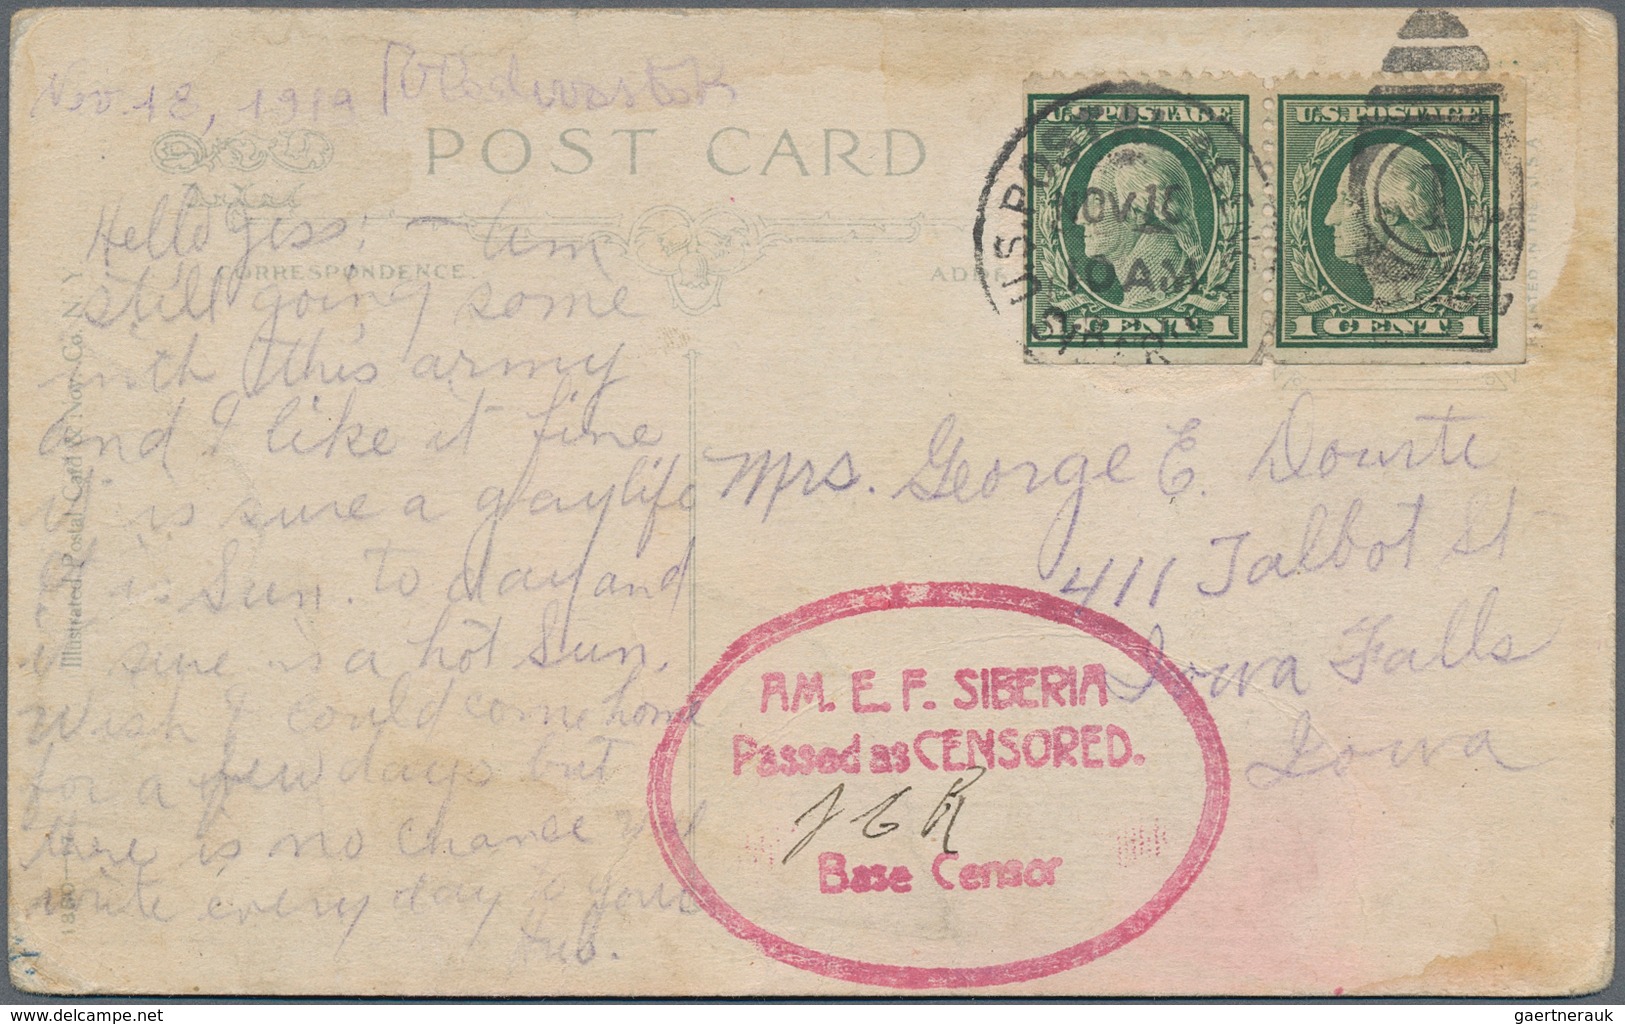 Nov. 18, 1919 Vladivostok
POST CARD
CORRESPONDENCE
Hello Jess; — Am
still going some
with this army
and I like it fine
it is sure a gay life
it is Sun. to day and
it sure is a hot Sun.
Wish I could come home
for a few days but
there is no chance
write every day to your
Hub.
Illustrated Postal Card & Nov. Co. N.Y.
1860—
U.S. POSTAGE
CENT 1
U.S. POSTAGE
1 CENT 1
U.S. POST
NOV 16
10 AM
PRINTED IN THE U.S.A.
Mrs. George E. Dourte
411 Talbot St
Iowa Falls
Iowa
AM. E. F. SIBERIA
Passed as CENSORED.
Base Censor
gaertnerauk
delcampe.net